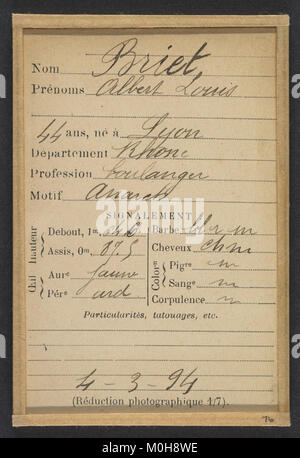 Nom Briet
Prénoms Albert Louis
44 ans, né à Lyon
Département Rhône
Profession boulanger
Motif Anarch
SIGNALEMENT
Œil Hauteur
Debout, 1m
Assis, 0m 87.5
Aure jaune
Pére
Barbe
Cheveux ch m
Colore
Pigre m
Sange m
Corpulence
Particularités, tatouages, etc.
4-3-94
(Réduction photographique 1/7).
alamy
Image ID: M0H8WE
www.alamy.com